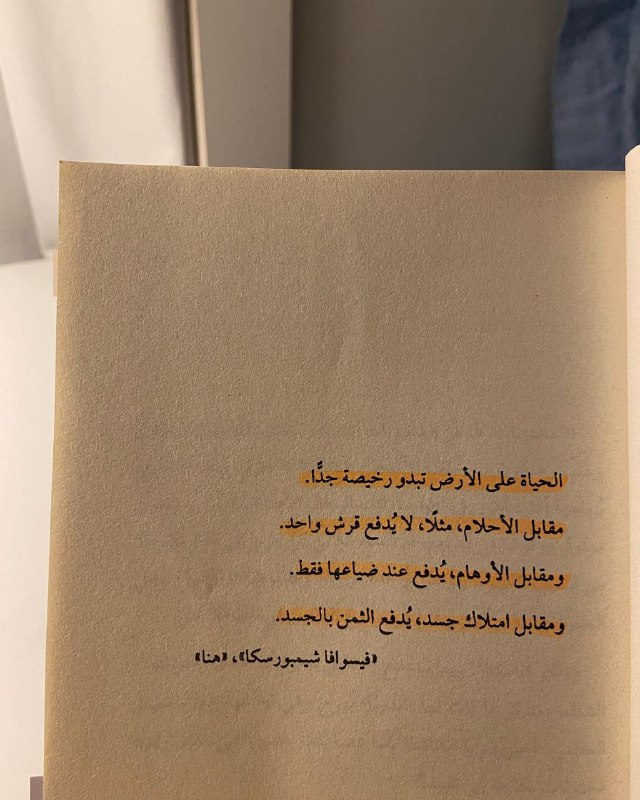 الحياة على الأرض تبدو رخيصة جدًّا.
مقابل الأحلام، مثلًا، لا يُدفع قرش واحد.
ومقابل الأوهام، يُدفع عند ضياعها فقط.
ومقابل امتلاك جسد، يُدفع الثمن بالجسد.
«فيسوافا شيمبورسكا»، «هنا»